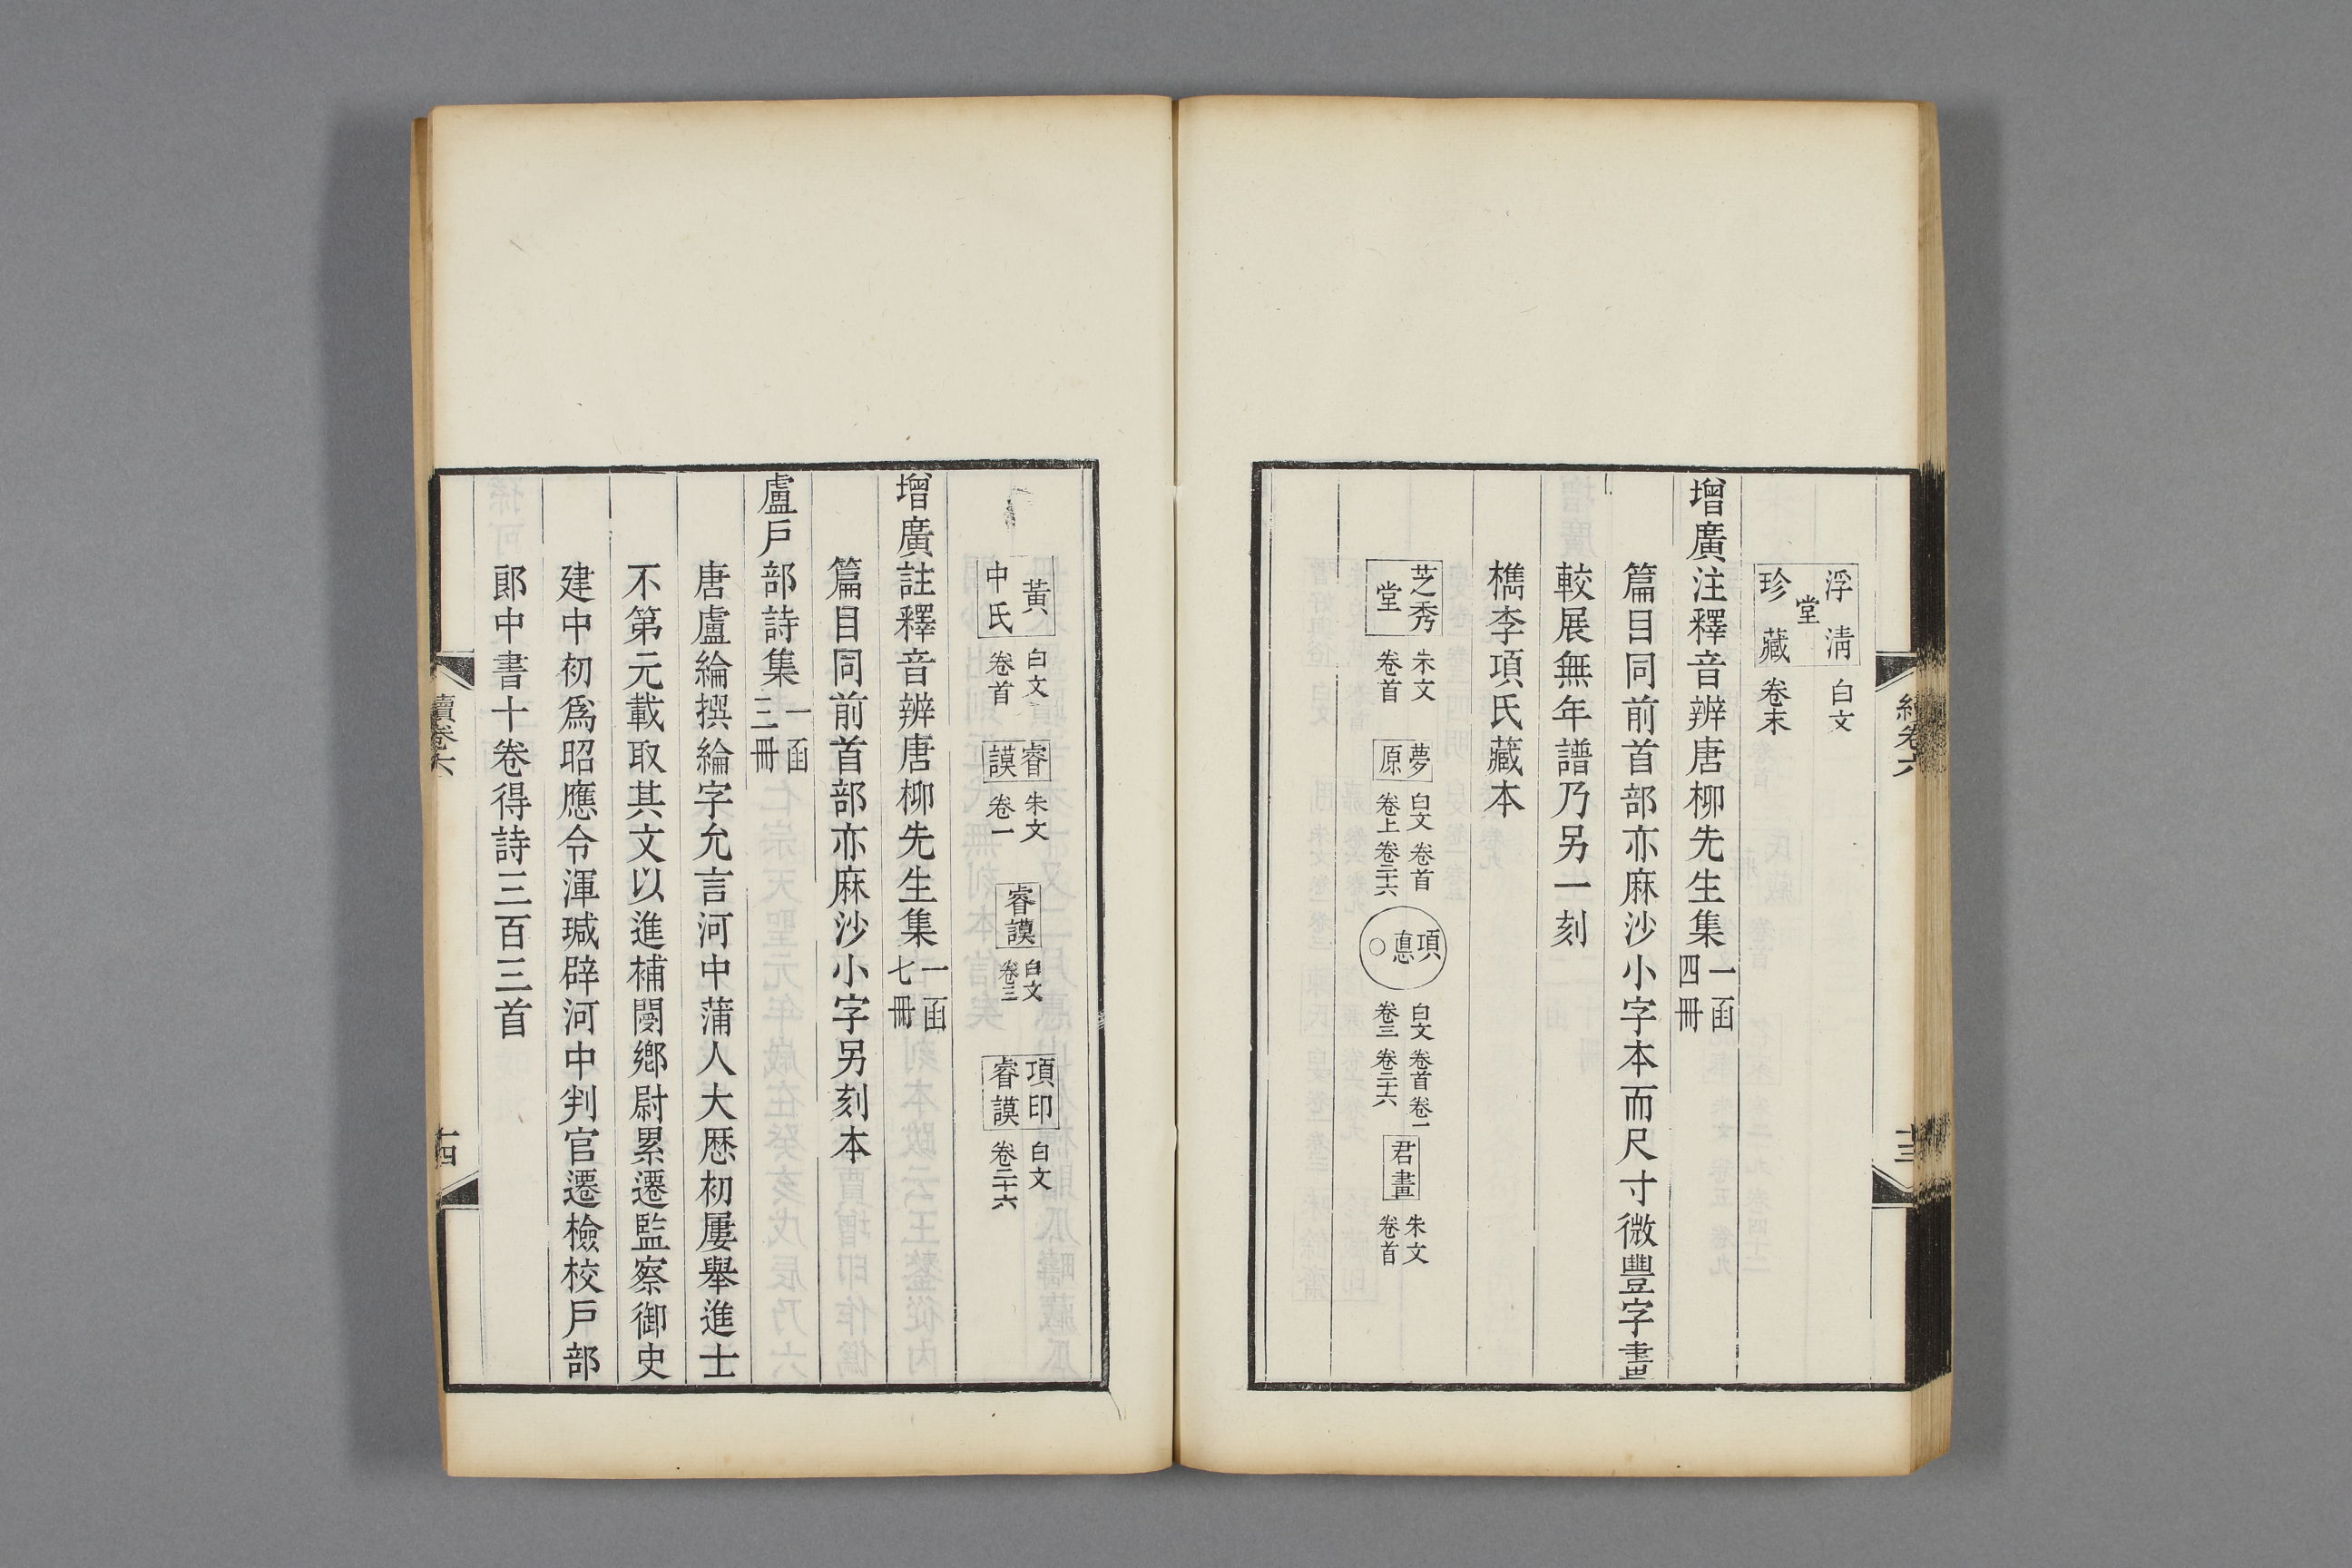 浮清堂珍藏 白文 卷末
增廣注釋音辨唐柳先生集 一函四冊
篇目同前首部亦麻沙小字本而尺寸微豐字畫
較展無年譜乃另一刻
檇李項氏藏本
芝秀堂 朱文 卷首 夢原 白文 卷首 卷上 卷二十六 項悳 白文 卷首 卷一 卷三 卷二十六 君畫 朱文 卷首
續卷六 十三
黃中氏 白文 卷首 睿謨 朱文 卷一 睿謨 白文 卷三 項印睿謨 白文 卷二十六
增廣註釋音辨唐柳先生集 一函七冊
篇目同前首部亦麻沙小字另刻本
盧戶部詩集 一函三冊
唐盧綸撰綸字允言河中蒲人大厯初屢舉進士
不第元載取其文以進補閿鄉尉累遷監察御史
建中初爲昭應令渾瑊辟河中判官遷檢校戶部
郞中書十卷得詩三百三首
續卷六 十四